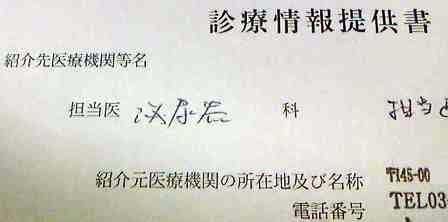 診療情報提供書
紹介先医療機関等名
担当医 泌尿器 科 担当
紹介元医療機関の所在地及び名称 〒145-00
電話番号 TEL03